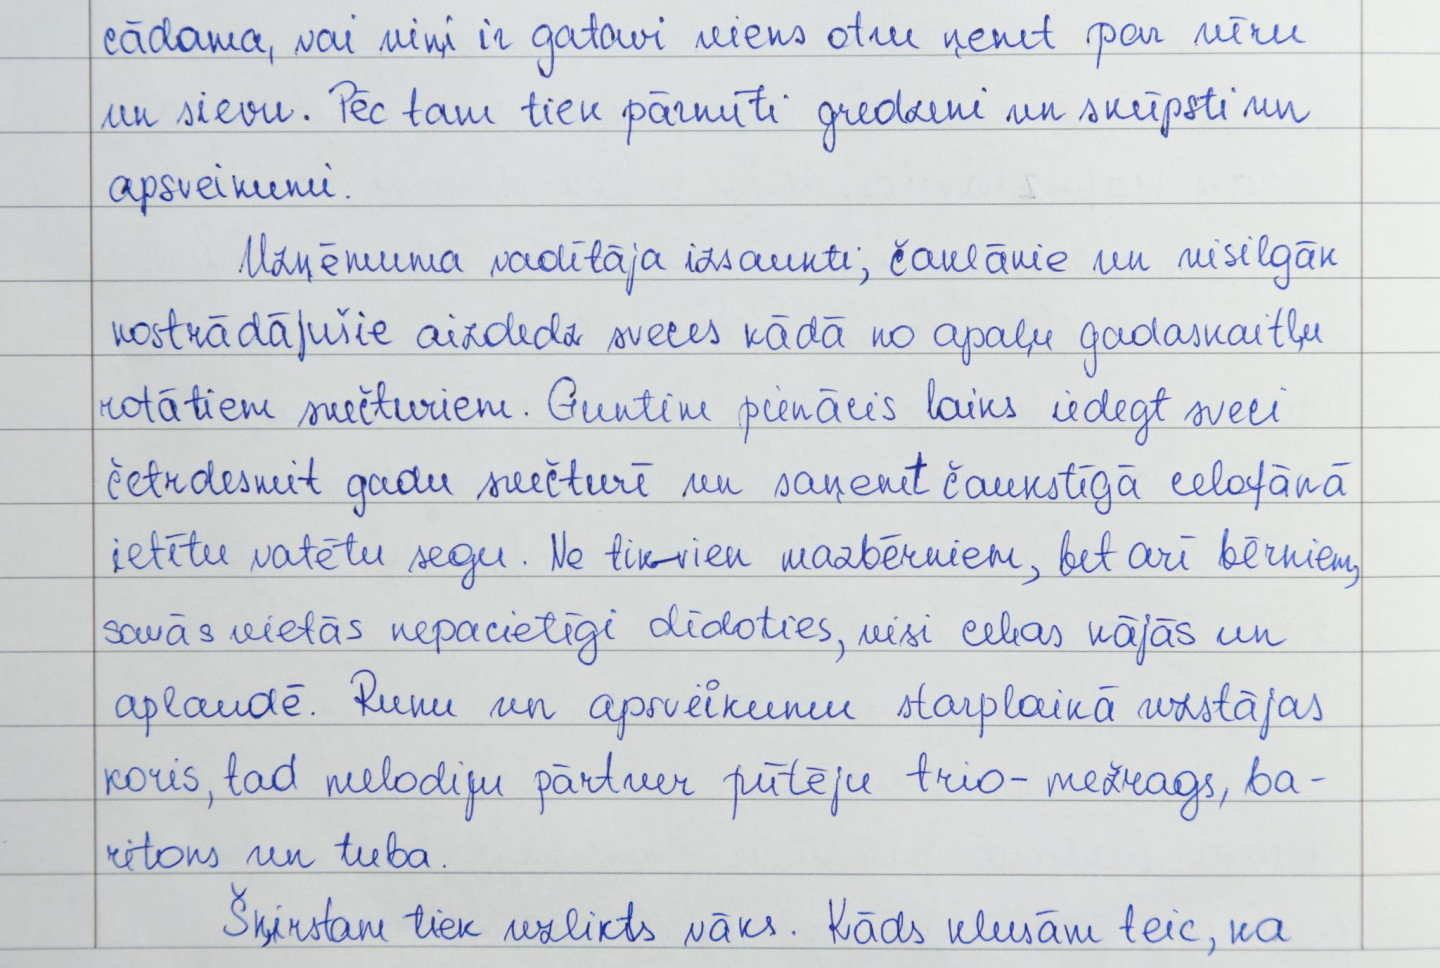 cādama, vai viņi ir gatavi viens otru ņemt par vīru
un sievu. Pēc tam tiek pārmīti gredzeni un skūpsti un
apsveikumi.
Uzņēmuma vadītāja izsaukti, čaklākie un visilgāk
nostrādājušie aizdedz sveces kādā no apaļu gadaskaitļu
rotātiem svečturiem. Guntim pienācis laiks iedegt sveci
četrdesmit gadu svečturī un saņemt čaukstīgā celofānā
ietītu vatētu segu. Ne tik vien mazbērniem, bet arī bērniem,
savās vietās nepacietīgi dīdoties, visi ceļas kājās un
aplaudē. Runu un apsveikumu starplaikā uzstājas
koris, tad melodiju pārtver pūtēju trio - mežrags, ba-
ritons un tuba.
Šķirstam tiek uzlikts vāks. Kāds klusām teic, ka